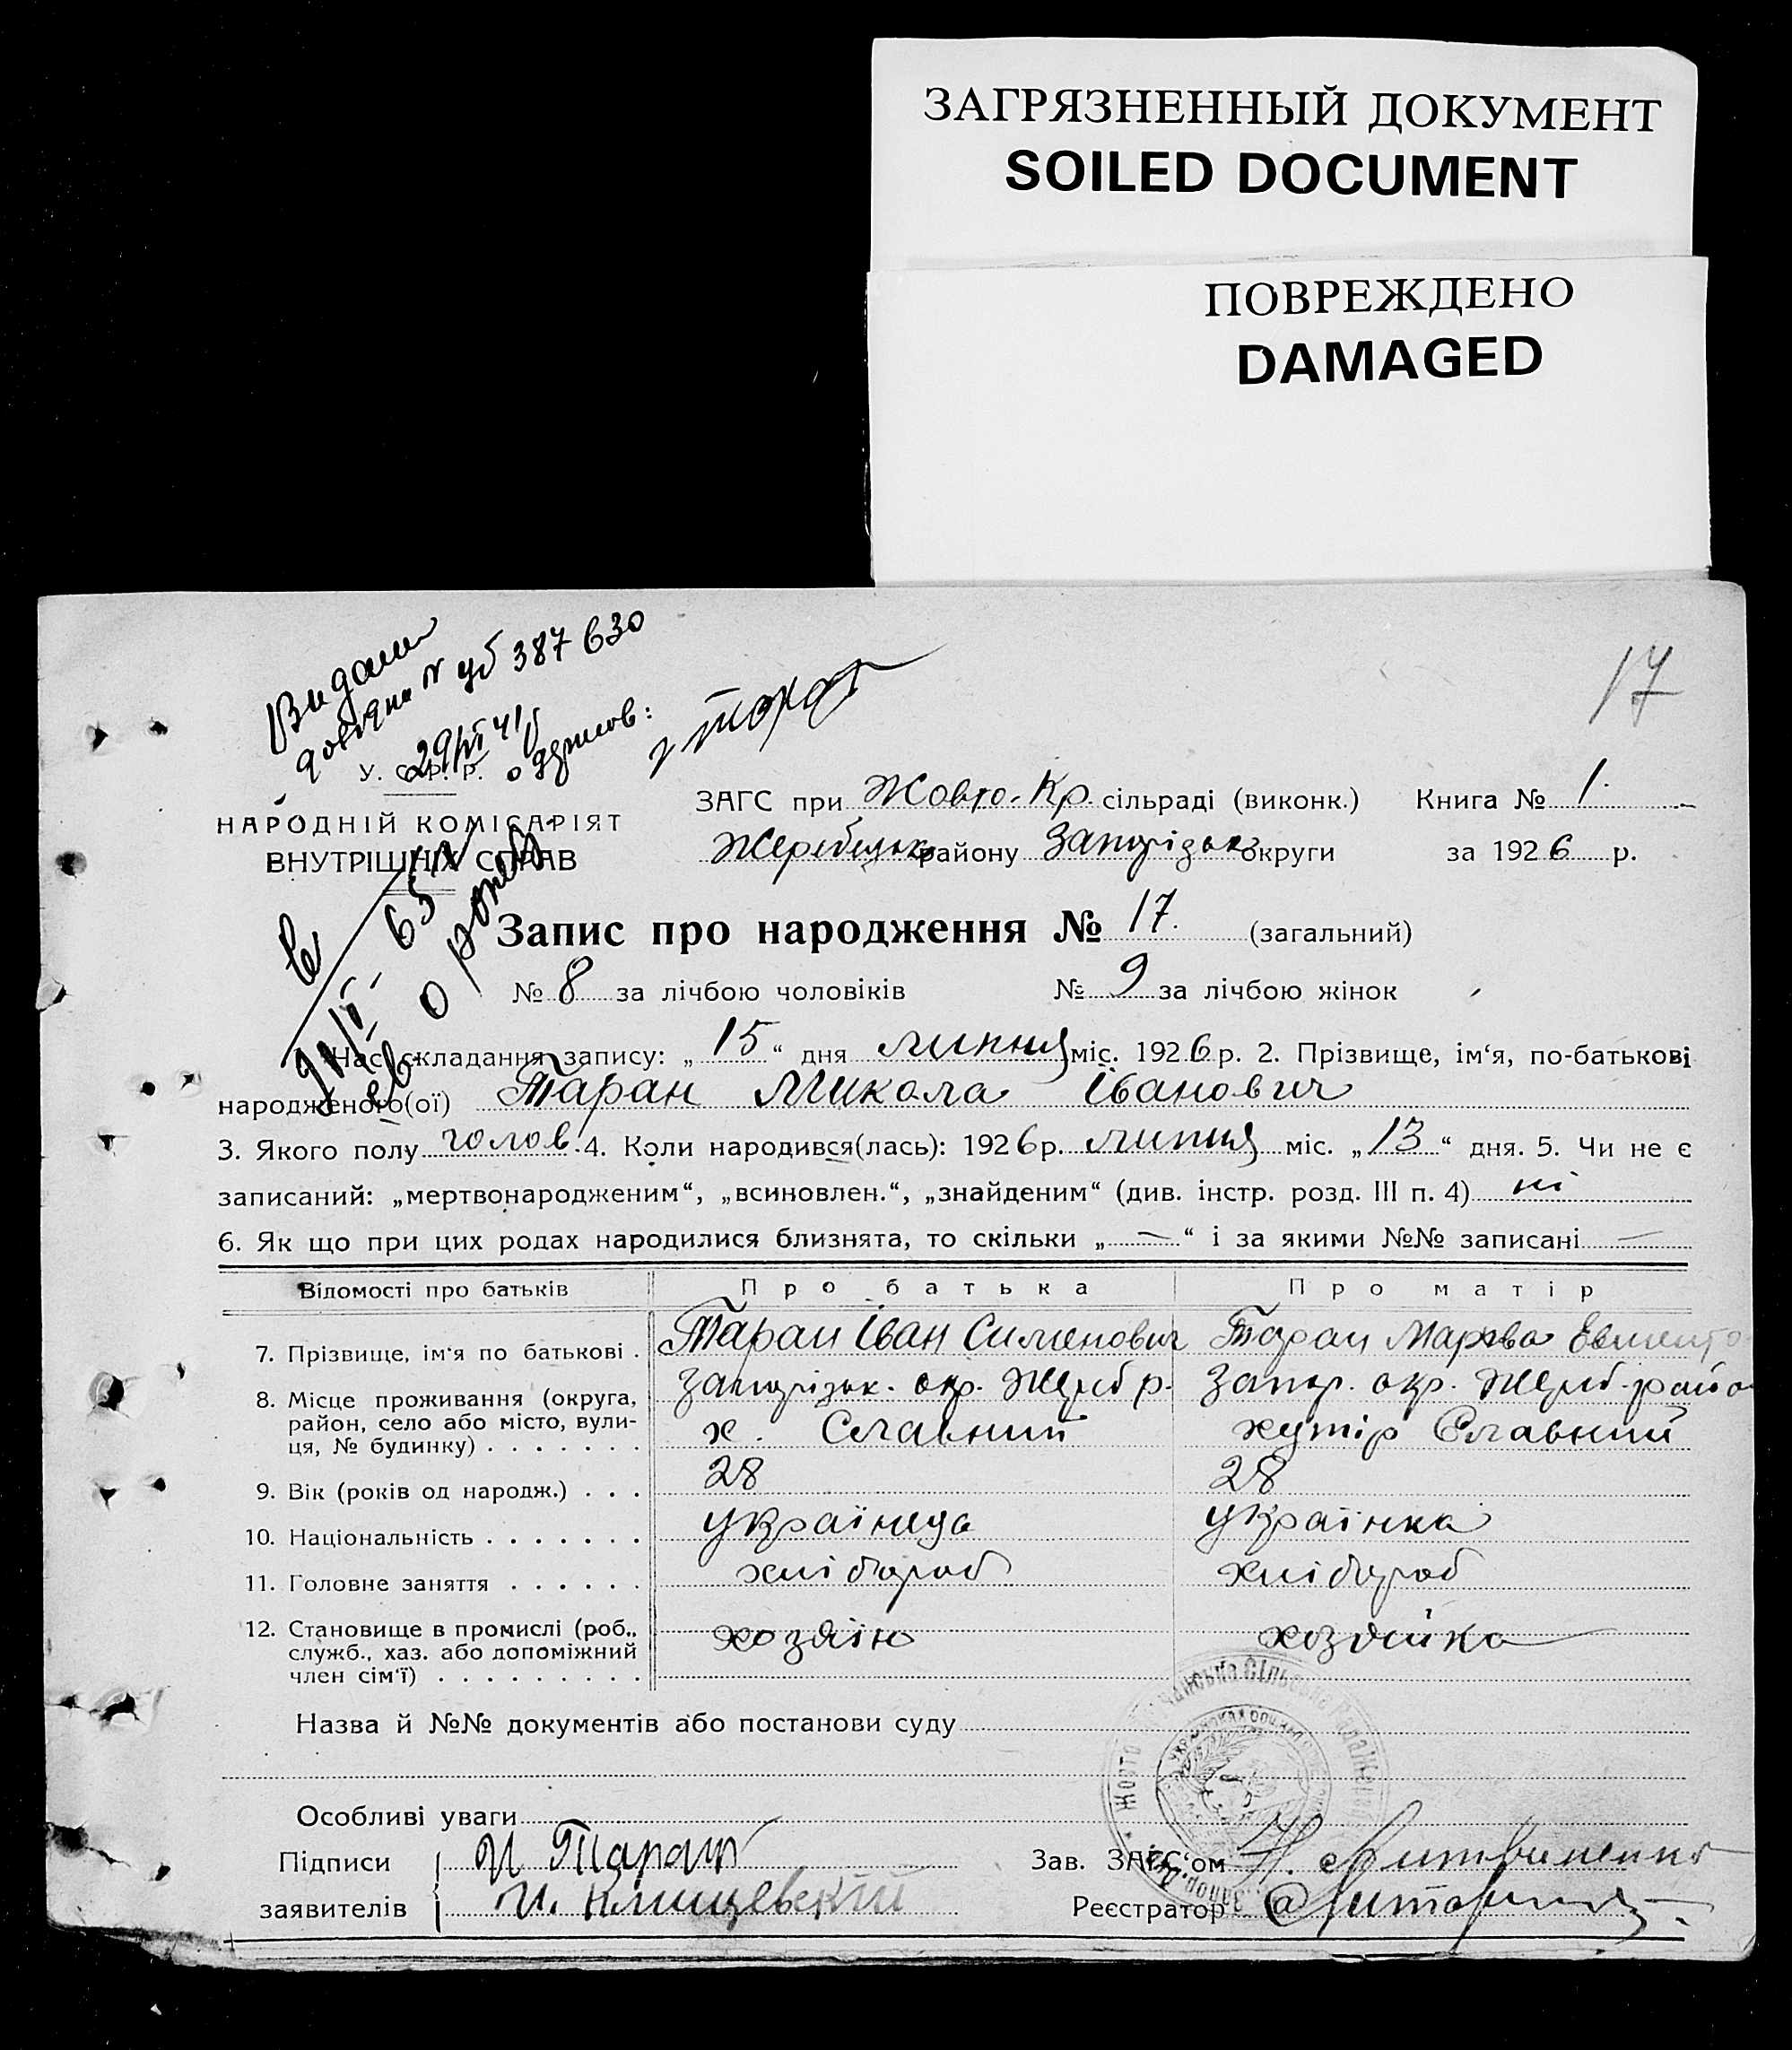 ЗАГРЯЗНЕННЫЙ ДОКУМЕНТ
SOILED DOCUMENT
ПОВРЕЖДЕНО
DAMAGED
17
Видана
довідка № 387630
У. С. Р. Р.
НАРОДНІЙ КОМІСАРІЯТ
ВНУТРІШНІХ СПРАВ
ЗАГС при Жовто-Кр. сільраді (виконк.) Книга № 1.
Жеребецьк. району Запорізьк. округи за 1926 р.
Запис про народження № 17. (загальний)
№ 8 за лічбою чоловіків № 9 за лічбою жінок
Час складання запису: „15“ дня липня міс. 1926 р. 2. Прізвище, ім‘я, по-батькові
народженого(ої) Таран Микола Іванович
3. Якого полу чолов. 4. Коли народився(лась): 1926 р. липня міс. „13“ дня. 5. Чи не є
записаний: „мертвонародженим“, „всиновлен.“, „знайденим“ (див. інстр. розд. III п. 4) ні
6. Як що при цих родах народилися близнята, то скільки „—“ і за якими №№ записані —
Відомості про батьків Про батька Про матір
7. Прізвище, ім‘я по батькові . Таран Іван Сименович Таран Марфа
8. Місце проживання (округа, Запорізьк. окр. Жереб р. Запор. окр. Жереб. райо
район, село або місто, вули-
ця, № будинку) . . . . . . . х. Славний хутір Славний
9. Вік (років од народж.) . . . 28 28
10. Національність . . . . . . . українець українка
11. Головне заняття . . . . . . хлібороб хлібороб
12. Становище в промислі (роб.,
служб., хаз. або допоміжний хозяїн хозяйка
член сім‘ї) . . . . . . . . .
Назва й №№ документів або постанови суду
Особливі уваги
Підписи И Таран Зав. ЗАГС‘ом Н. Литвиненко
заявителів И. Клищевский Реєстратор